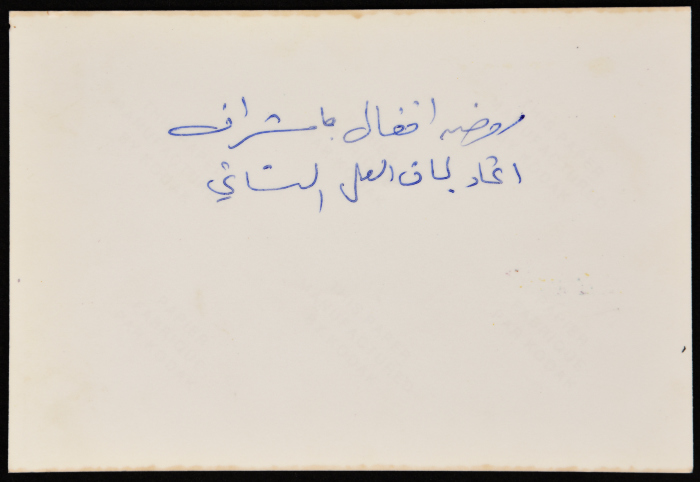 روضه اطفال باشراف
اتحاد لجان العمل النسائي